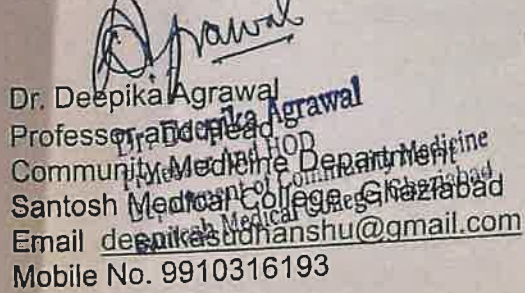 Agrawal
Dr. Deepika Agrawal
Professor and Head
Community Medicine Department
Santosh Medical College, Ghaziabad
Email deepikasudhanshu@gmail.com
Mobile No. 9910316193
Dr. Deepika Agrawal
Professor And HOD
Department of Community Medicine
Santosh Medical College, Ghaziabad